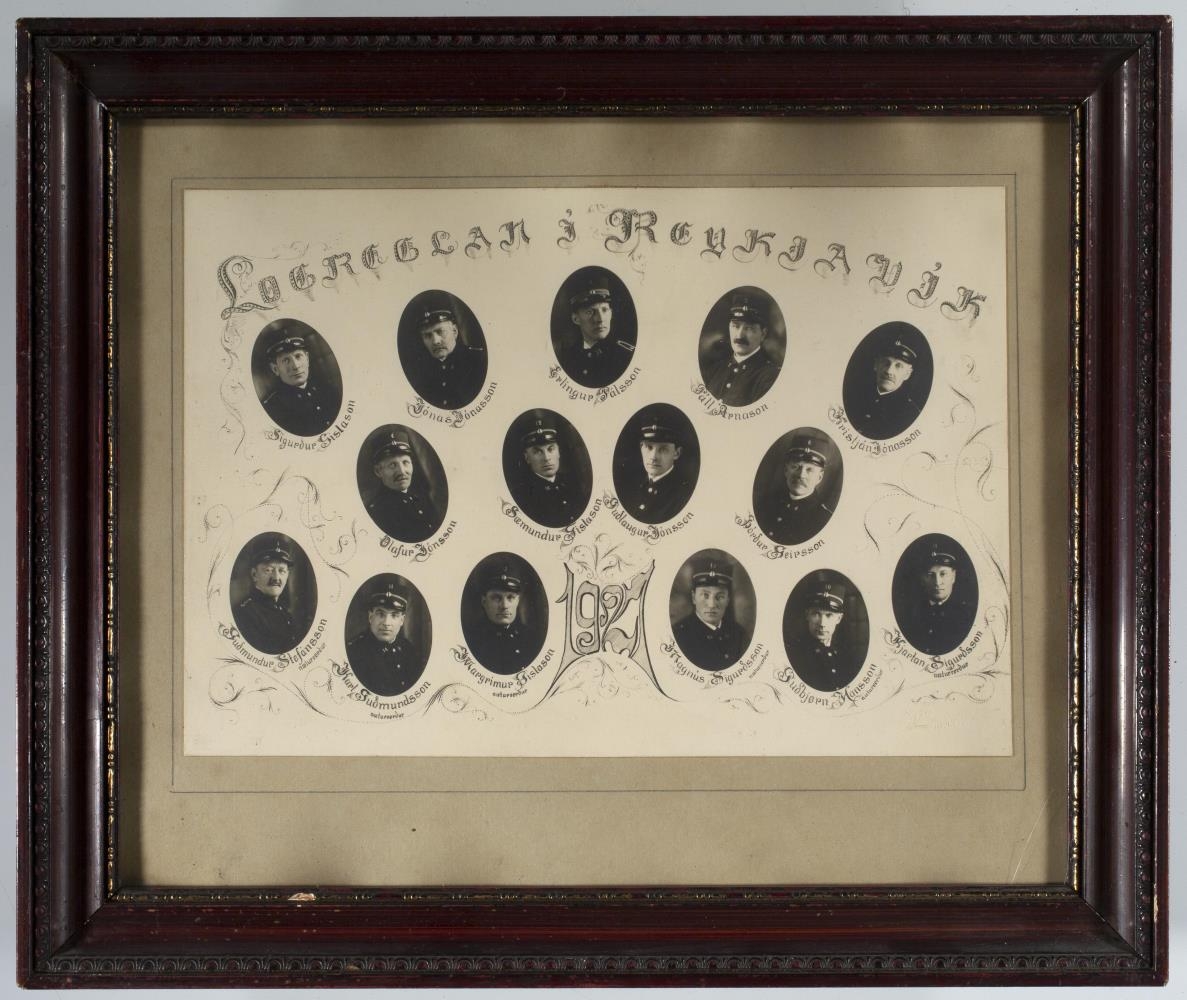 Lögreglan í Reykjavík
Sigurdur Gislason
Jónas Jónasson
Erlingur Pálsson
Páll Arnason
Kristján Jónasson
Olafur Jónsson
Sæmundur Gislason
Gudlaugur Jónsson
Þórdur Geirsson
1921
Gudmundur Stefánsson
næturvördur
Karl Gudmundsson
næturvördur
Margrimur Gislason
næturvördur
Magnús Sigurdsson
næturvördur
Gudbjörn Hansson
næturvördur
Kjartan Sigurdsson
næturvördur